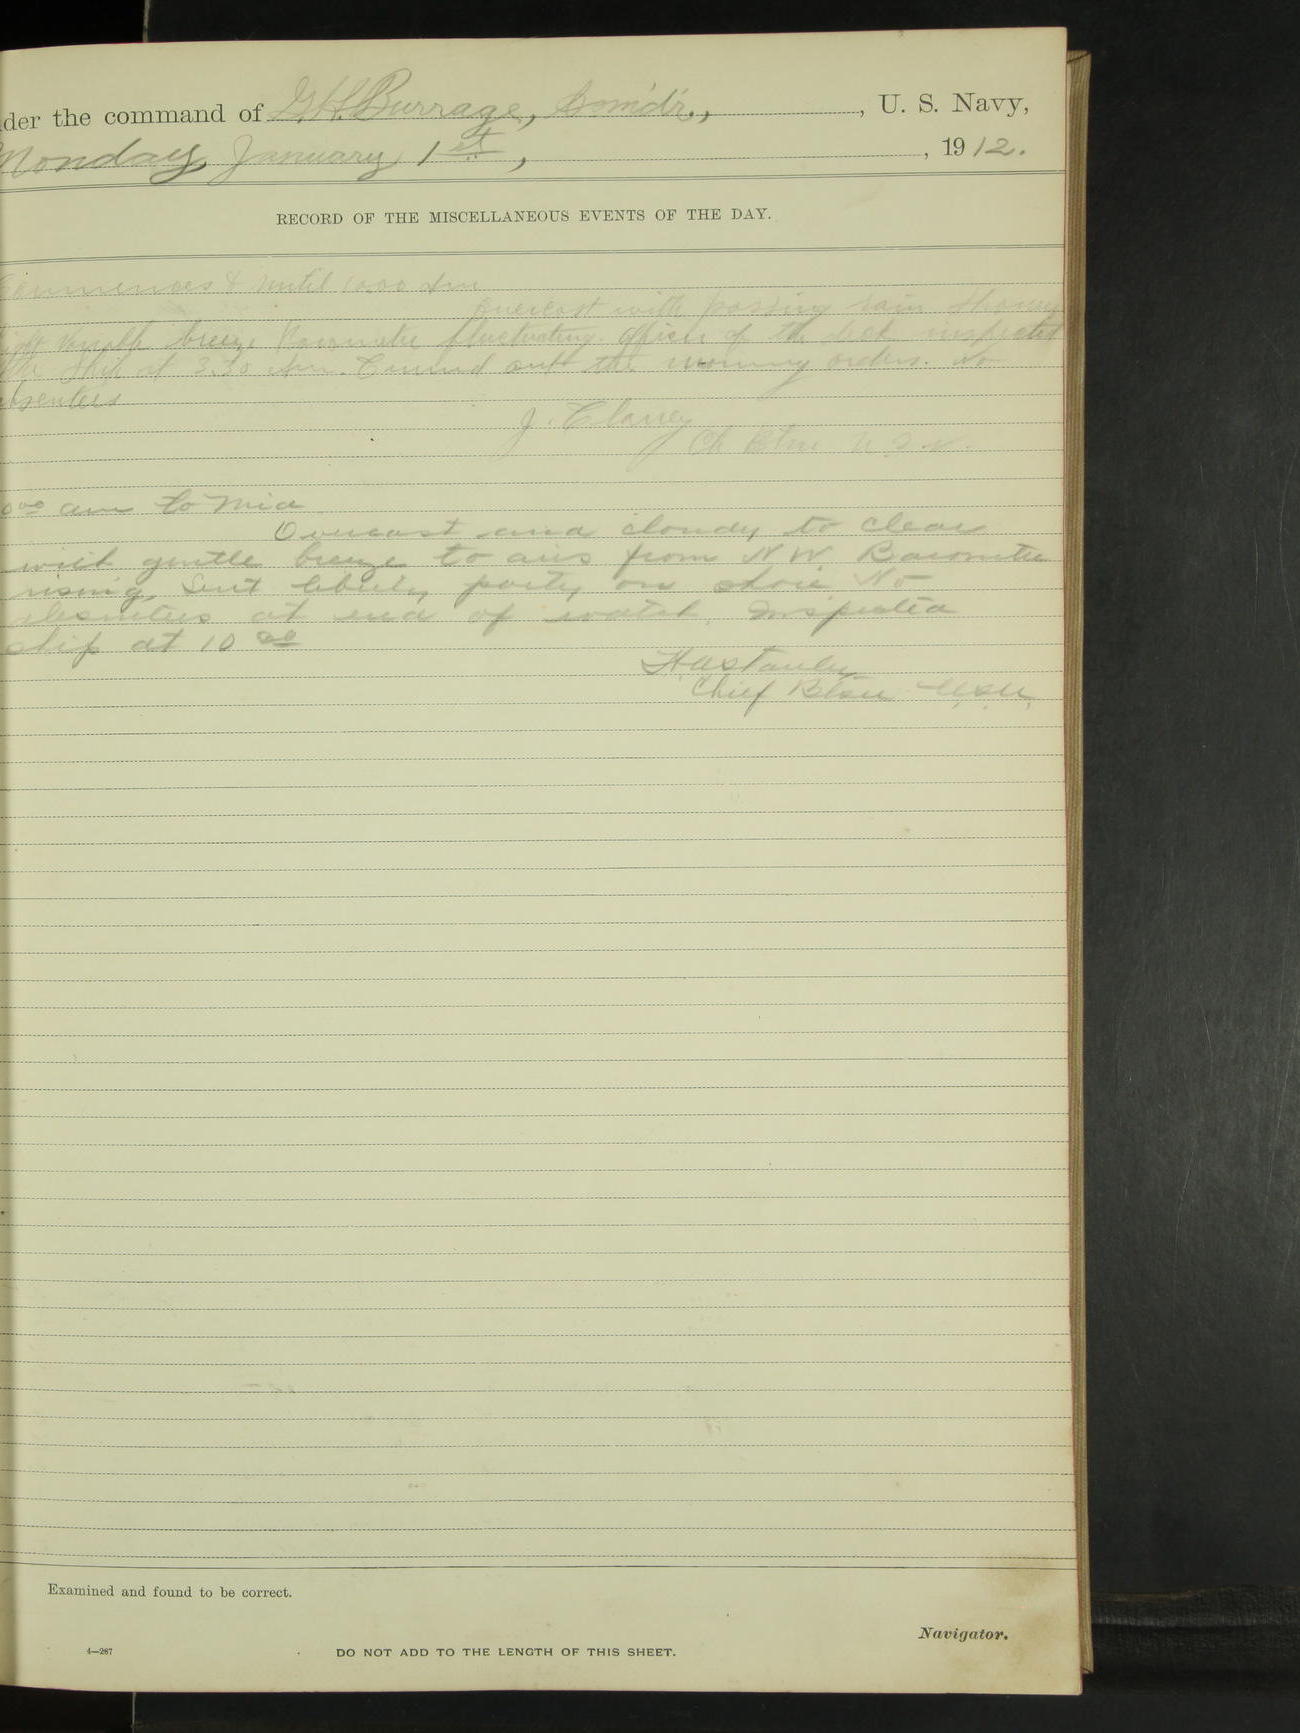 der the command of G.H. Burrage, Comd'r., , U. S. Navy,
Monday January 1st, , 1912.
RECORD OF THE MISCELLANEOUS EVENTS OF THE DAY.
Commences & until 10.00 Am
Overcast with passing rain showers
light variable breeze Barometer fluctuating. Officer of the deck inspected
the ship at 3.30 Am. Carried out the morning orders. No
absentees
J. Clancy
Ch Btsn U.S.N.
am to Mid
Overcast and cloudy to clear
with gentle breeze to airs from N W Barometer
rising, Sent liberty party on shore No
absentees at end of watch. Inspected
ship at 10 00
H.A. Stanley
Chief Btsn U.S.N.
Examined and found to be correct.
Navigator.
4—267
DO NOT ADD TO THE LENGTH OF THIS SHEET.